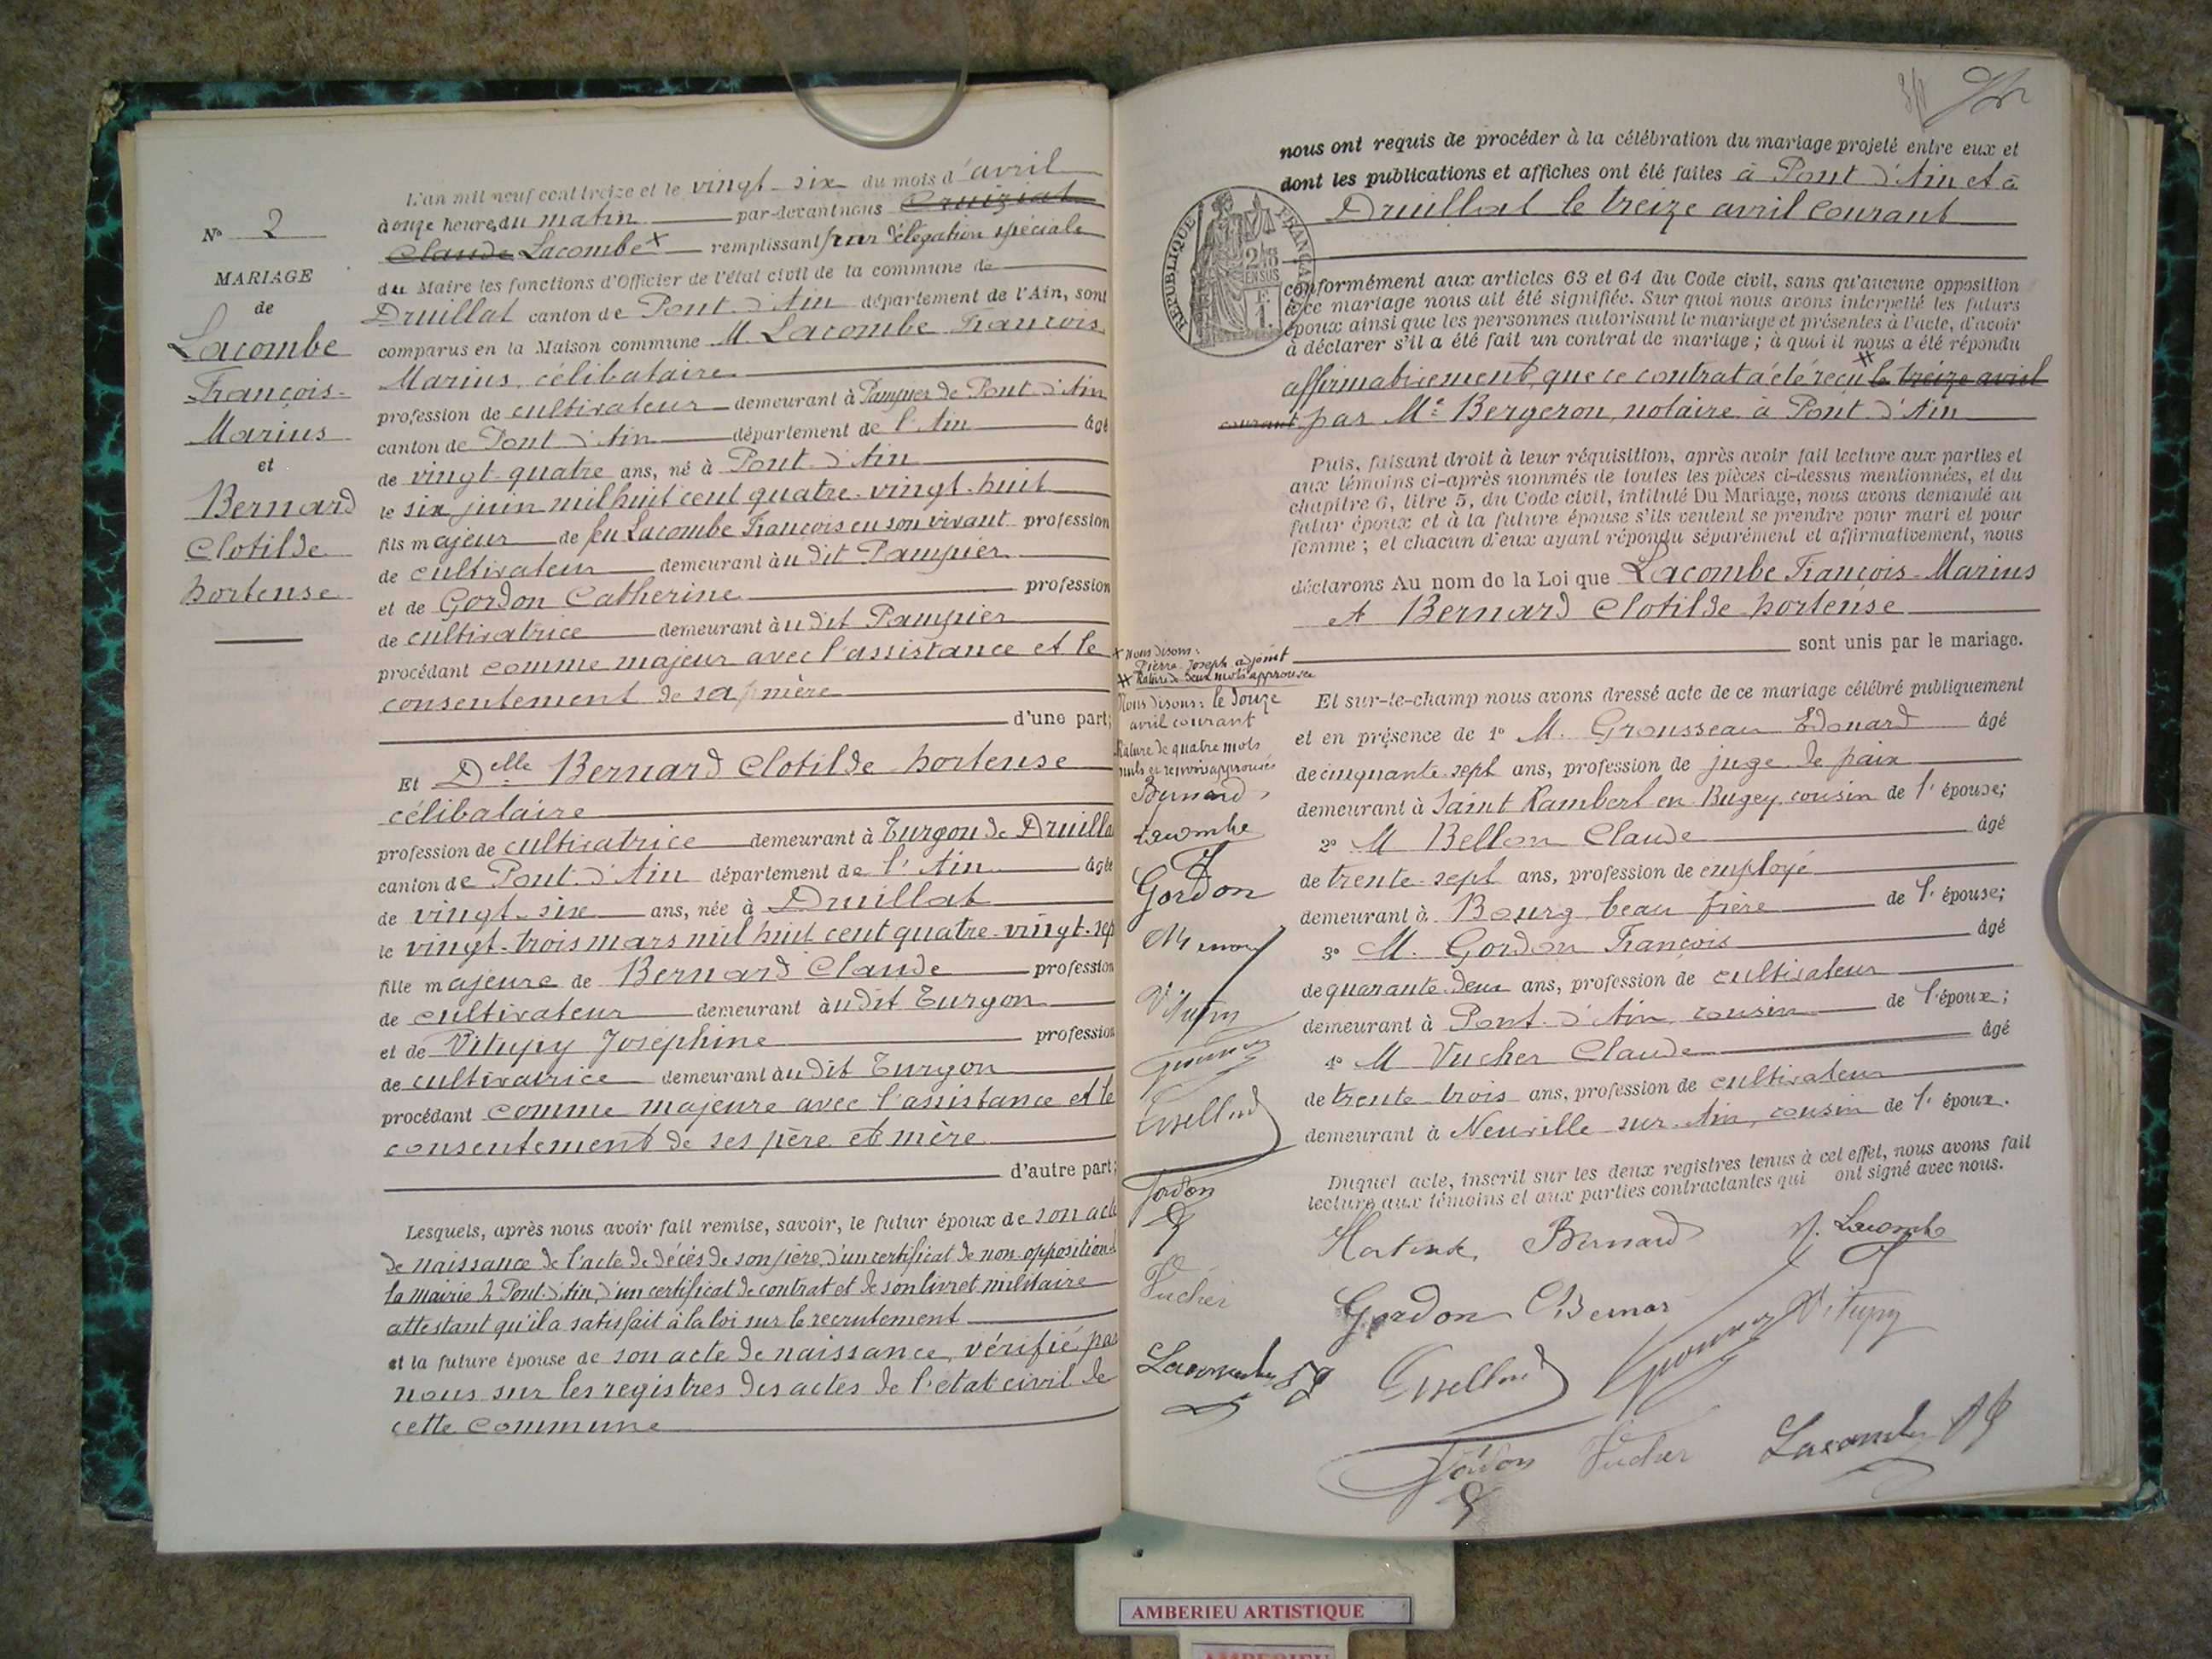 N° 2
MARIAGE
de
Lacombe
François-
Marius
et
Bernard
Clotilde
hortense
L'an mil neuf cent treize et le vingt-six du mois d'avril
à onze heures du matin par-devant nous Cruiziat
Claude Lacombe x remplissant par délégation spéciale
du Maire les fonctions d'Officier de l'état civil de la commune de
Druillat canton de Pont d'Ain département de l'Ain, sont
comparus en la Maison commune M. Lacombe François
Marius, célibataire
profession de cultivateur demeurant à Pampier de Pont d'Ain
canton de Pont d'Ain département de l'Ain âgé
de vingt-quatre ans, né à Pont d'Ain
le six juin mil huit cent quatre-vingt-huit
fils majeur de feu Lacombe François en son vivant profession
de cultivateur demeurant àudit Pampier
et de Gordon Catherine profession
de cultivatrice demeurant àudit Pampier
procédant comme majeur avec l'assistance et le
consentement de sa mère
d'une part;
Et Delle Bernard Clotilde hortense
célibataire
profession de cultivatrice demeurant à Turgon de Druilla
canton de Pont d'Ain département de l'Ain âgée
de vingt-six ans, née à Druillat
le vingt-trois mars mil huit cent quatre-vingt-sep
fille majeure de Bernard Claude profession
de cultivateur demeurant àudit Turgon
et de Vitupy Joséphine profession
de cultivatrice demeurant àudit Turgon
procédant comme majeure avec l'assistance et le
consentement de ses père et mère
d'autre part;
Lesquels, après nous avoir fait remise, savoir, le futur époux de son acte
de naissance de l'acte de décès de son père, d'un certificat de non opposition de
la mairie de Pont d'Ain, d'un certificat de contrat et de son livret militaire
attestant qu'il a satisfait à la loi sur le recrutement
et la future épouse de son acte de naissance, vérifié par
nous sur les registres des actes de l'état civil de
cette commune
x nous disons:
Pierre-Joseph adjoint
Rature de deux mots approuvée
Nous disons: le douze
avril courant
Rature de quatre mots
nuls et renvois approuvés
Bernard
Lacombe
Gordon
Vitupy
Gordon
Vucher
Lacombe
nous ont requis de procéder à la célébration du mariage projeté entre eux et
dont les publications et affiches ont été faites à Pont d'Ain et à
Druillat le treize avril courant
RÉPUBLIQUE FRANÇAISE
conformément aux articles 63 et 64 du Code civil, sans qu'aucune opposition
à ce mariage nous ait été signifiée. Sur quoi nous avons interpellé les futurs
époux ainsi que les personnes autorisant le mariage et présentes à l'acte, d'avoir
à déclarer s'il a été fait un contrat de mariage; à quoi il nous a été répondu
affirmativement, que ce contrat a été reçu le treize avril
courant par Me Bergeron, notaire à Pont d'Ain
Puis, faisant droit à leur réquisition, après avoir fait lecture aux parties et
aux témoins ci-après nommés de toutes les pièces ci-dessus mentionnées, et du
chapitre 6, titre 5, du Code civil, intitulé Du Mariage, nous avons demandé au
futur époux et à la future épouse s'ils veulent se prendre pour mari et pour
femme; et chacun d'eux ayant répondu séparément et affirmativement, nous
déclarons Au nom de la Loi que Lacombe François-Marius
et Bernard Clotilde hortense
sont unis par le mariage.
Et sur-le-champ nous avons dressé acte de ce mariage célébré publiquement
et en présence de 1° M. Grousseau Edouard âgé
de cinquante-sept ans, profession de juge de paix
demeurant à Saint Rambert en Bugey, cousin de l'épouse;
2° M Bellon Claude âgé
de trente-sept ans, profession de employé
demeurant à Bourg beau frère de l'épouse;
3° M. Gordon François âgé
de quarante-deux ans, profession de cultivateur
demeurant à Pont d'Ain, cousin de l'époux;
4° M Vucher Claude âgé
de trente-trois ans, profession de cultivateur
demeurant à Neuville sur Ain, cousin de l'époux.
Duquel acte, inscrit sur les deux registres tenus à cet effet, nous avons fait
lecture aux témoins et aux parties contractantes qui ont signé avec nous.
Hortense Bernard M. Lacombe
Gordon Bernard Vitupy
Gordon Vucher Lacombe
AMBERIEU ARTISTIQUE
AMBERIEU